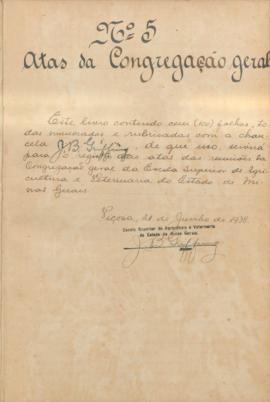 Nº 5
Atas da Congregação geral
Este livro contendo cem (100) folhas, to-
das numeradas e rubricadas com a chan-
cela J. B. Griffing, de que uso, servirá
para o registro das atas das reuniões da
Congregação geral da Escola Superior de Agri-
cultura e Veterinaria do Estado de Mi-
nas Gerais
Viçosa, de Junho de 1938.
Escola Superior de Agricultura e Veterinaria
do Estado de Minas Gerais
J. B. Griffing